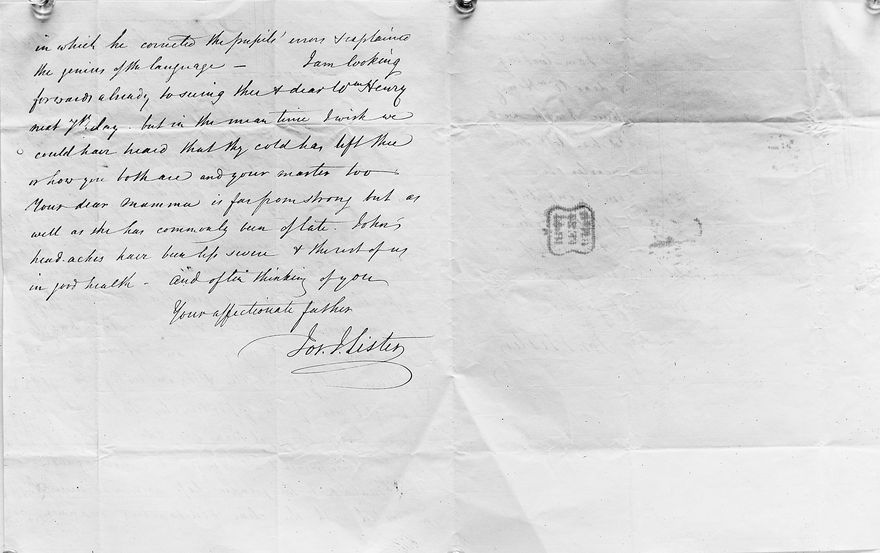 in which he corrected the pupils' errors & explained
the genius of the language — I am looking
forwards already to seeing thee & dear Wm Henry
next 7th day. but in the mean time I wish we
could have heard that thy cold has left thee
or how you both are and your master too
Your dear mamma is far from strong but as
well as she has commonly been of late. John's
head-aches have been less severe & the rest of us
in good health — and often thinking of you
Your affectionate father
Jos. J. Lister